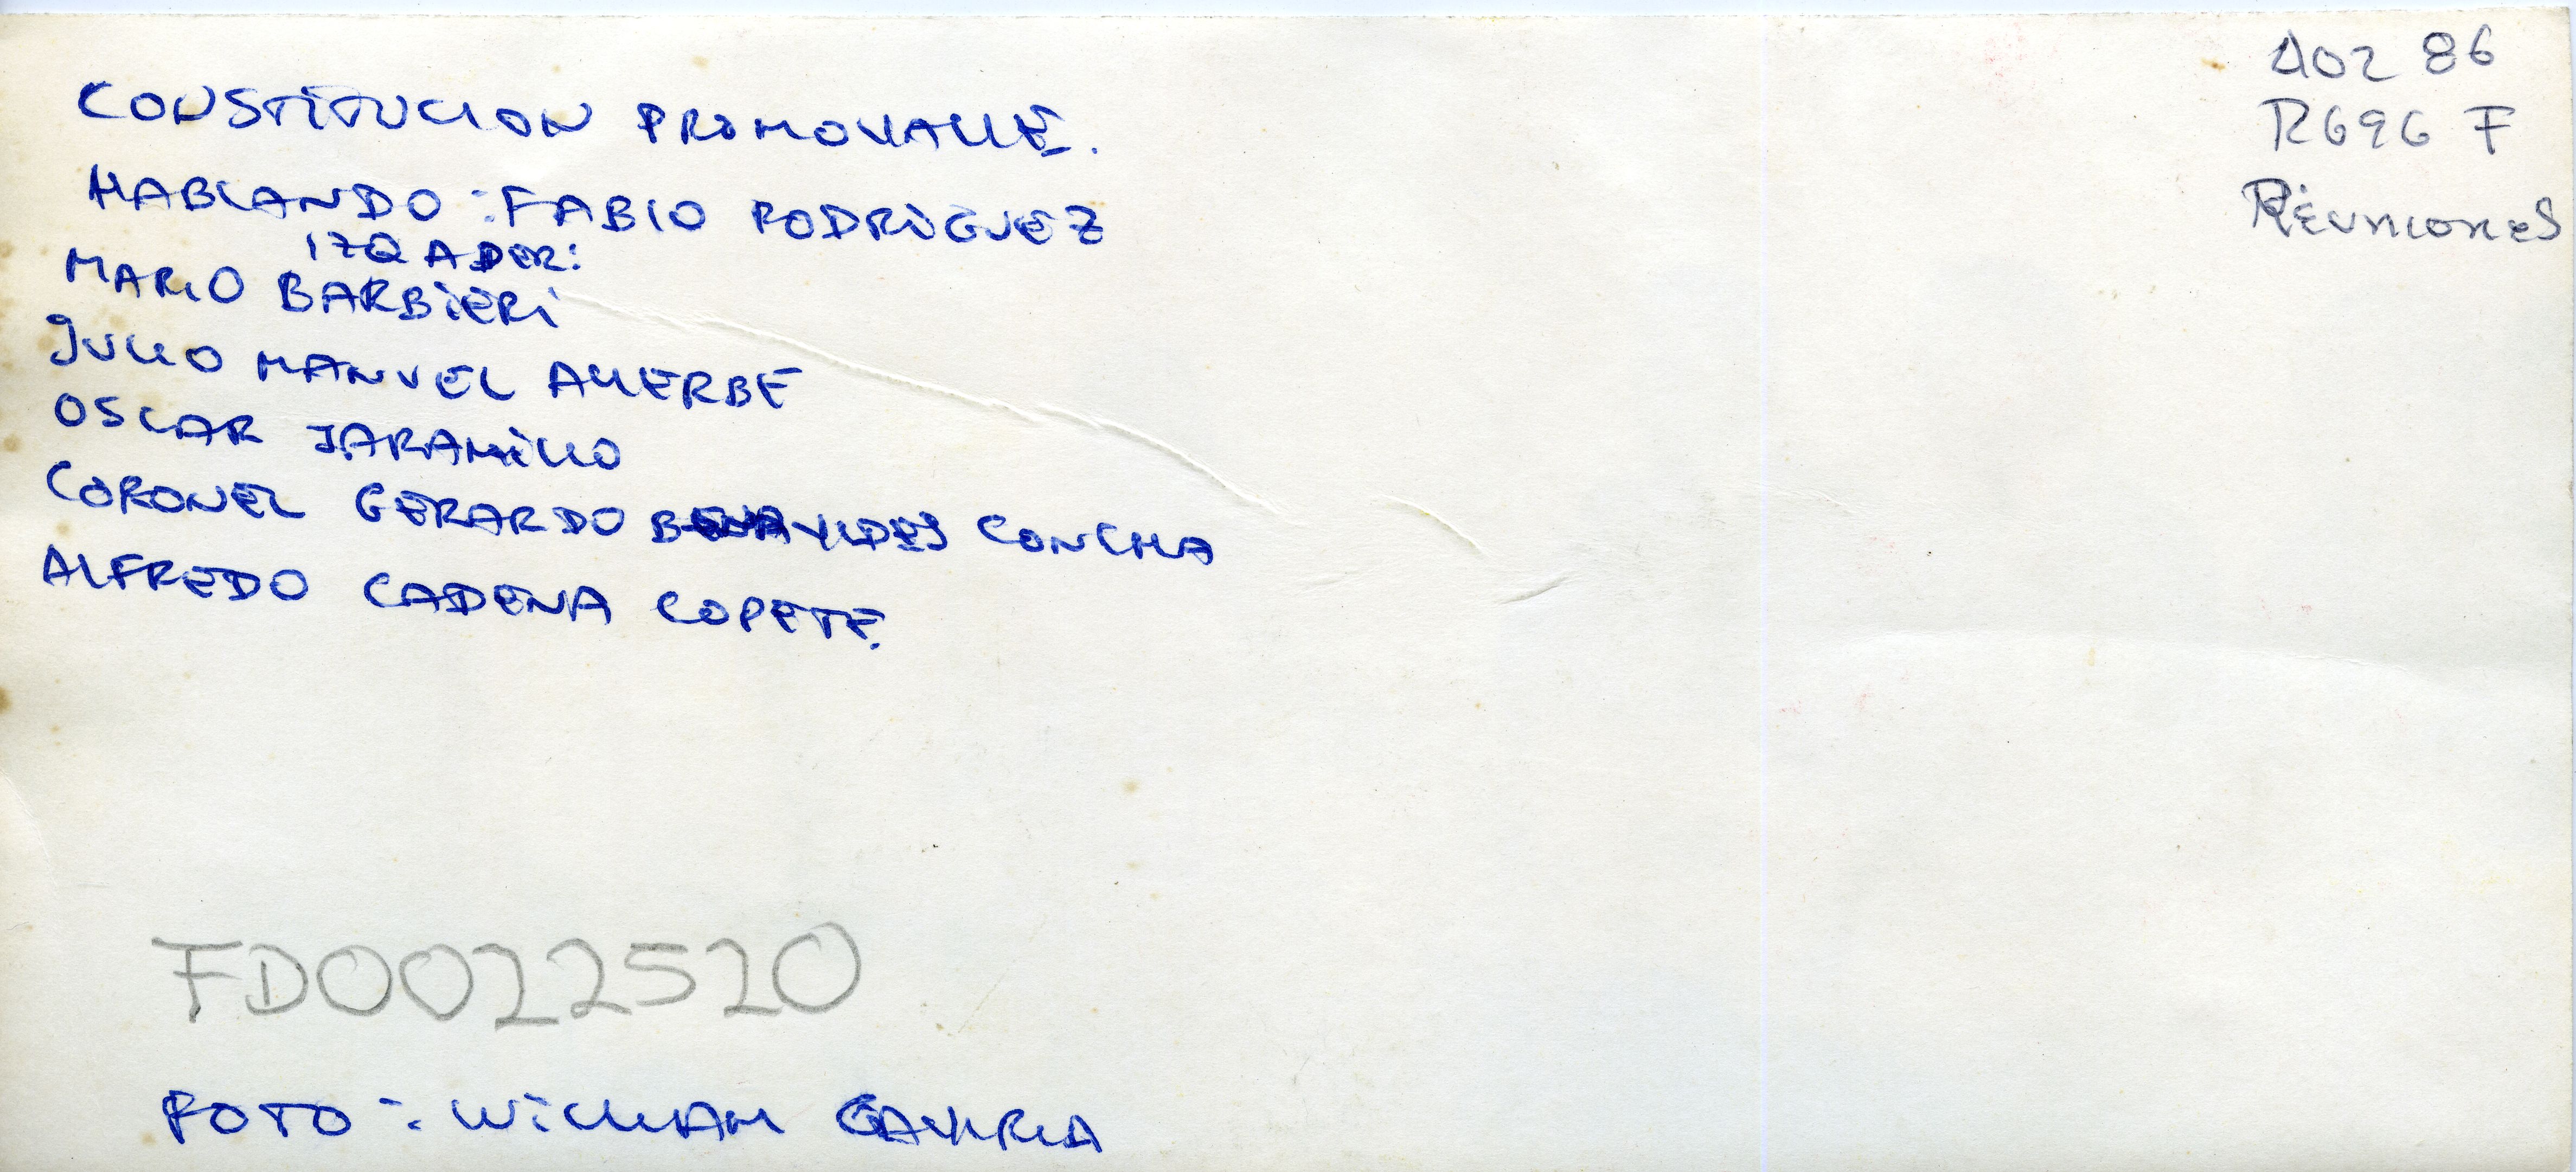 CONSTITUCION PROMOVALLE.
HABLANDO: FABIO RODRIGUEZ
IZQ A DER:
MARIO BARBIERI
JULIO MANUEL AYERBE
OSCAR JARAMILLO
CORONEL GERARDO BENAVIDES CONCHA
ALFREDO CADENA COPETE.
FD0022520
FOTO: WILLIAM GAVIRIA
A02 86
R696 F
Reuniones